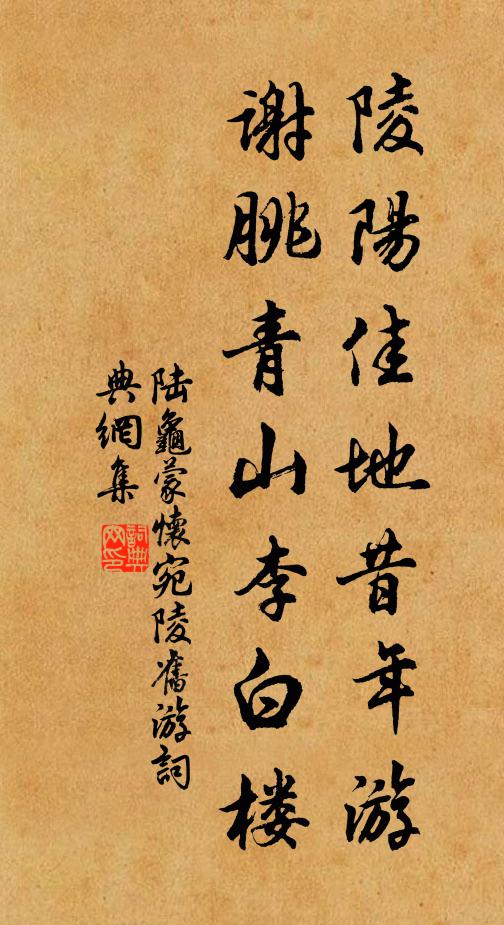 陵陽佳地昔年游
謝朓青山李白楼
陆龜蒙懷宛陵舊游詞
典網集
詞典网印